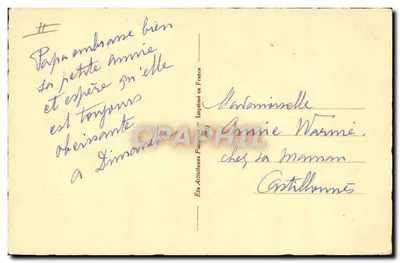 Papa embrasse bien
sa petite Annie
et espère qu'elle
est toujours
obeissante
a Dimanche
Ets Artistiques — Imprimé en France
Mademoiselle
Annie
chez sa Maman
Castillonnès
CPAPHIL